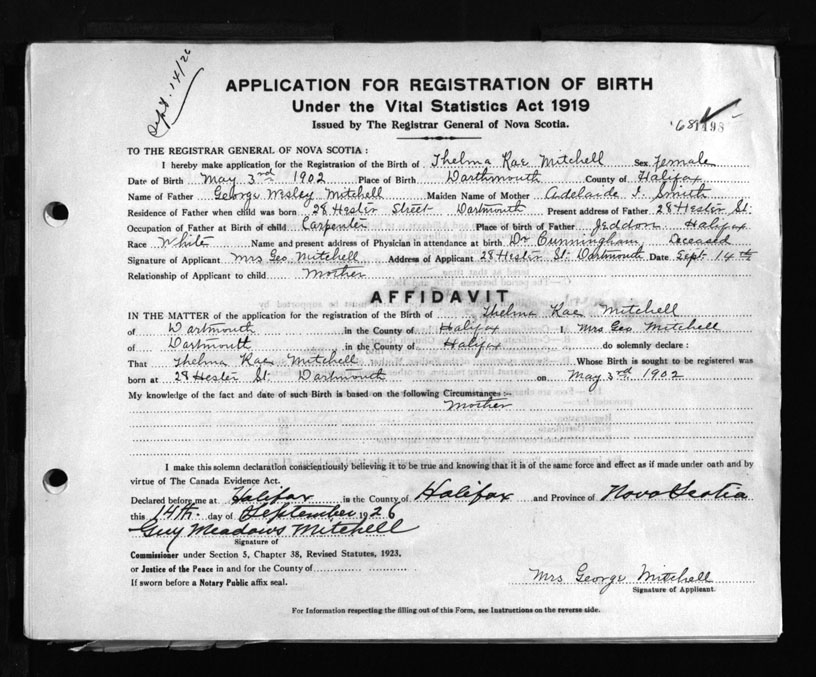 Sept. 14/26
APPLICATION FOR REGISTRATION OF BIRTH
Under the Vital Statistics Act 1919
Issued by The Registrar General of Nova Scotia.
TO THE REGISTRAR GENERAL OF NOVA SCOTIA :
I hereby make application for the Registration of the Birth of Thelma Rae Mitchell Sex Female
Date of Birth May 3rd 1902 Place of Birth Darthmouth County of Halifax
Name of Father George Wesley Mitchell Maiden Name of Mother Adelaide I. Smith
Residence of Father when child was born 28 Hester Street Dartmouth Present address of Father 28 Hester St.
Occupation of Father at Birth of child Carpenter Place of birth of Father Jeddore Halifax
Race White Name and present address of Physician in attendance at birth Dr Cunningham, Deceased
Signature of Applicant Mrs Geo Mitchell Address of Applicant 28 Hester St. Dartmouth Date Sept 14th
Relationship of Applicant to child Mother
AFFIDAVIT
IN THE MATTER of the application for the registration of the Birth of Thelma Rae Mitchell
of Dartmouth in the County of Halifax I, Mrs Geo Mitchell
of Dartmouth in the County of Halifax do solemnly declare :
That Thelma Rae Mitchell Whose Birth is sought to be registered was
born at 28 Hester St. Dartmouth on May 3rd 1902
My knowledge of the fact and date of such Birth is based on the following Circumstances :-
Mother
I make this solemn declaration conscientiously believing it to be true and knowing that it is of the same force and effect as if made under oath and by
virtue of The Canada Evidence Act.
Declared before me at Halifax in the County of Halifax and Province of Nova Scotia
this 14th day of September 1926
Guy Meadows Mitchell
Signature of
Commissioner under Section 5, Chapter 38, Revised Statutes, 1923.
or Justice of the Peace in and for the County of
If sworn before a Notary Public affix seal.
Mrs George Mitchell
Signature of Applicant.
For Information respecting the filling out of this Form, see Instructions on the reverse side.